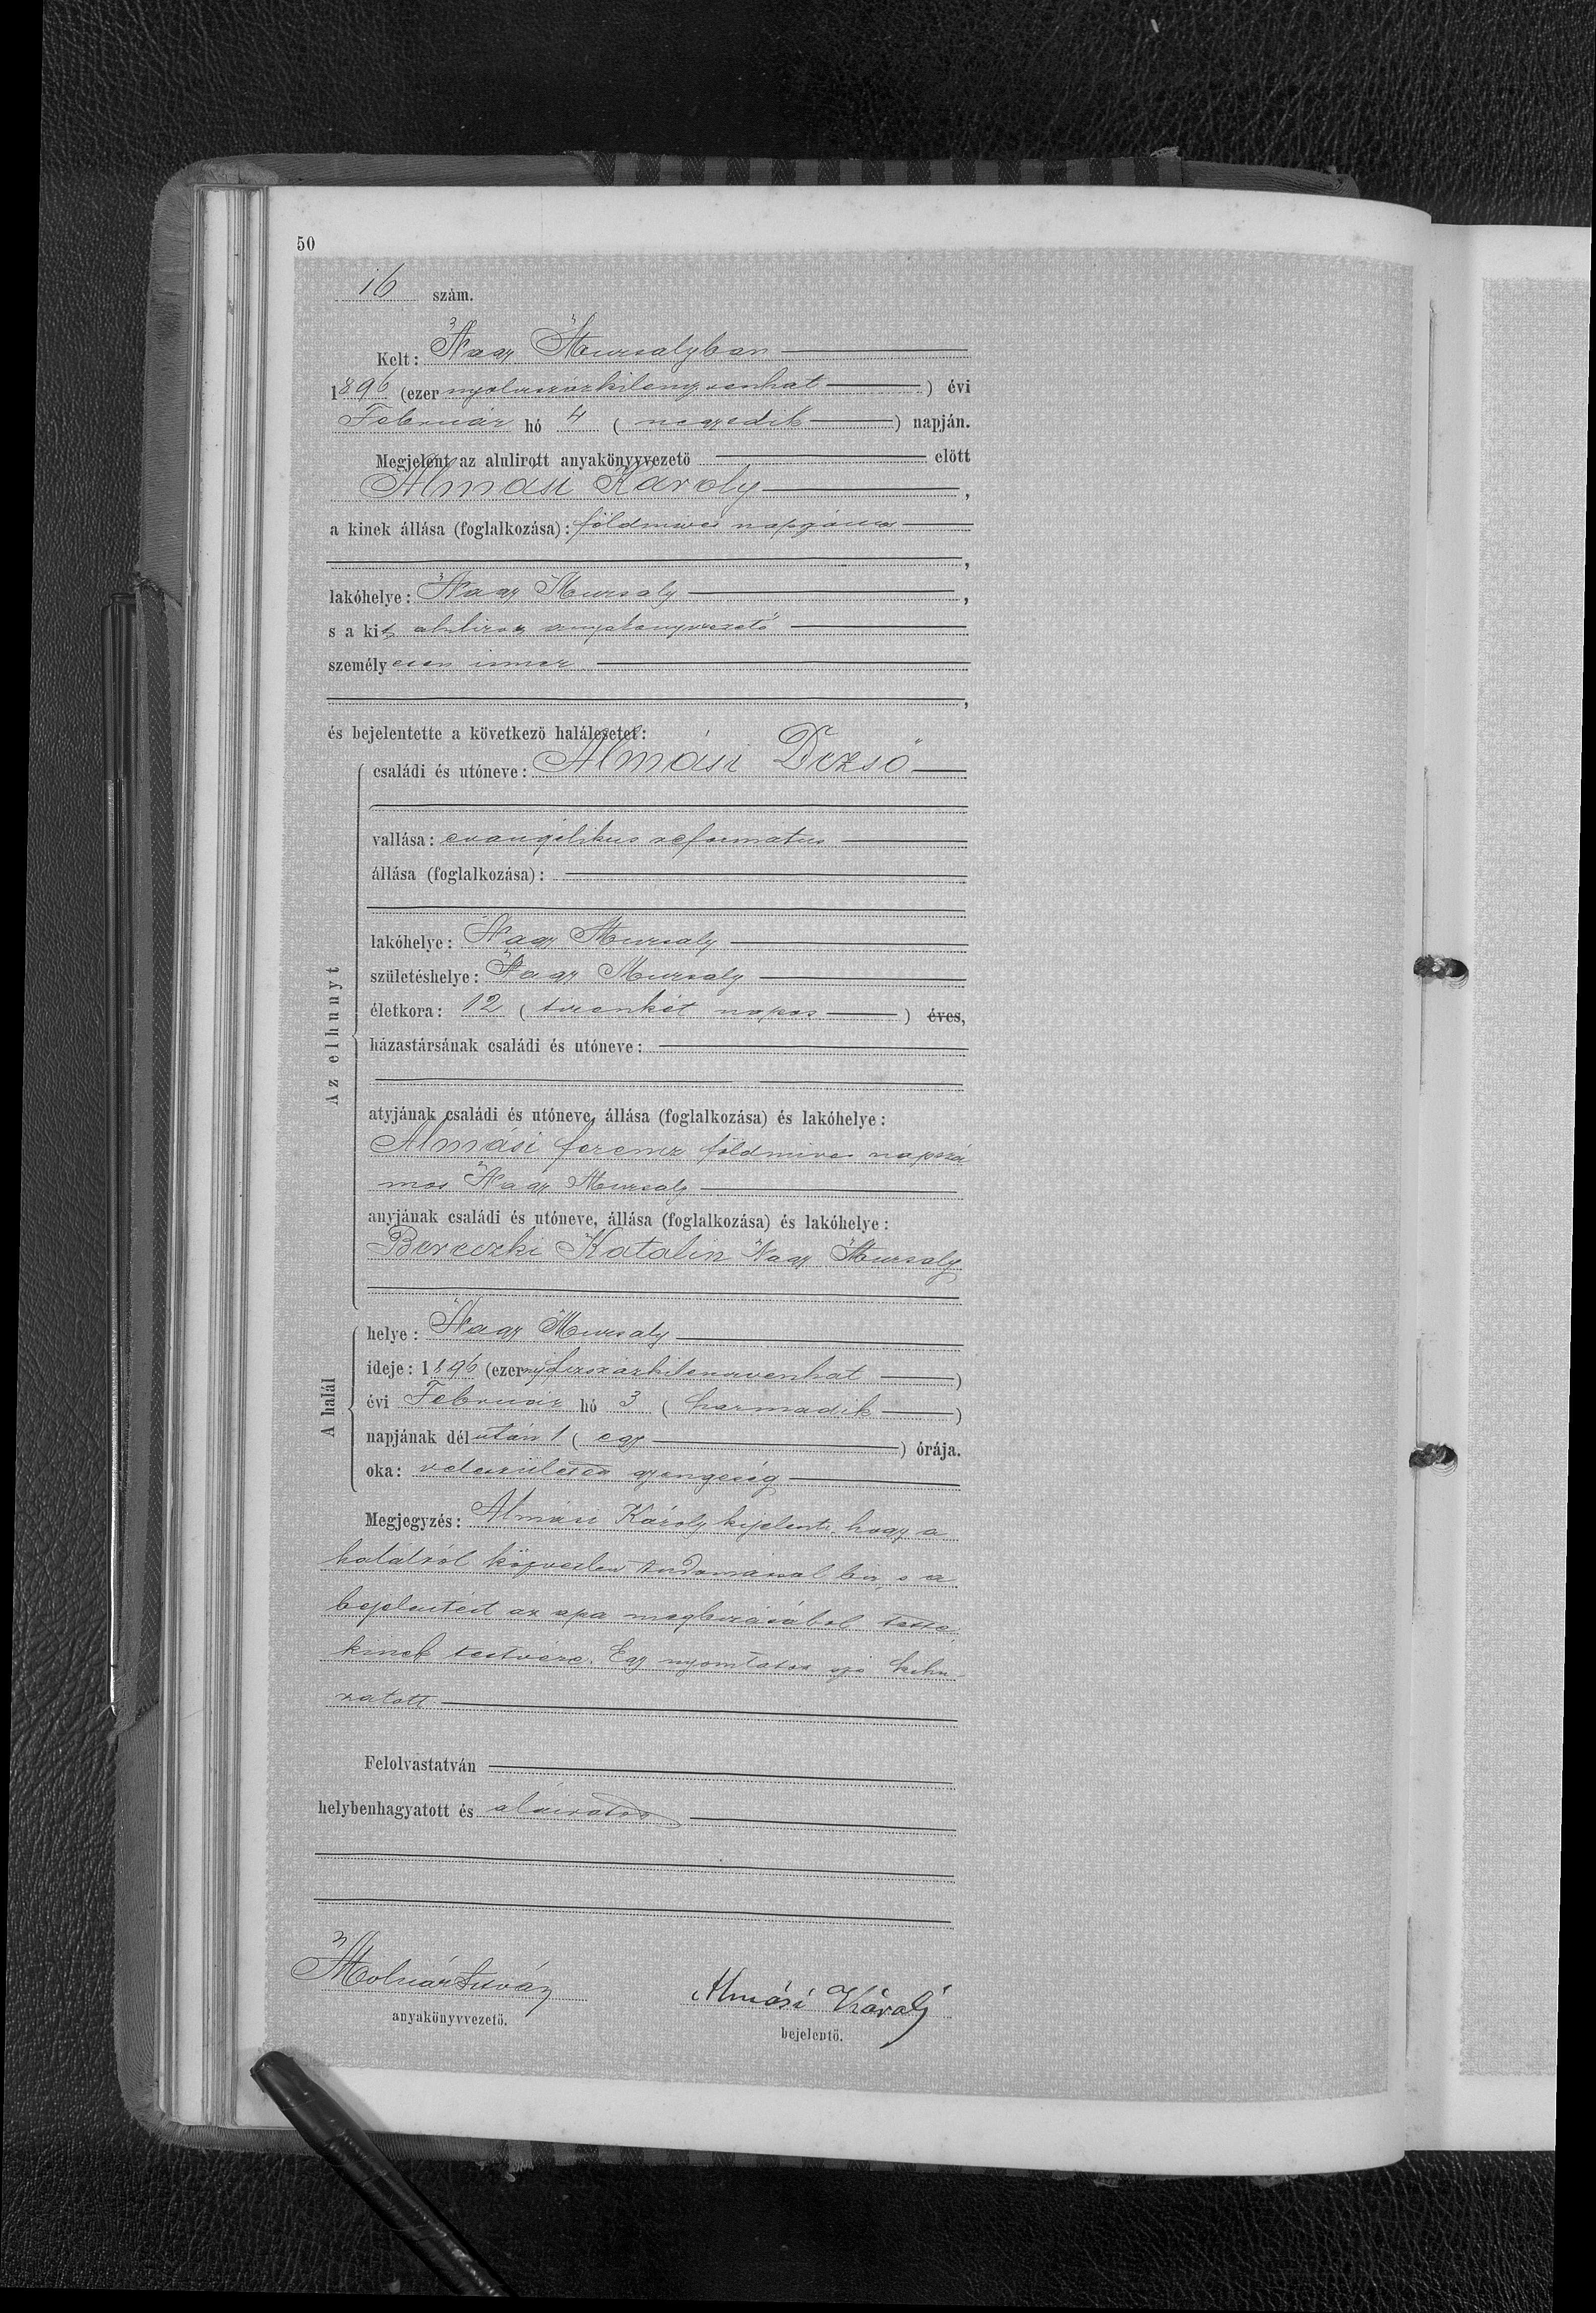 50
16 szám.
Kelt: Nagy Muzsalyban
1896 (ezer nyolczszázkilenczvenhat) évi
Február hó 4 (negyedik) napján.
Megjelent az alulirott anyakönyvvezető előtt
Almási Károly,
a kinek állása (foglalkozása): földmives napszámos
,
lakóhelye: Nagy Muzsaly,
s a kit alulirott anyakönyvvezető
személyesen ismer
,
és bejelentette a következő halálesetet:
Az elhunyt
családi és utóneve: Almási Dezső
vallása: evangélikus református
állása (foglalkozása):
lakóhelye: Nagy Muzsaly
születéshelye: Nagy Muzsaly
életkora: 12 (tizenkét napos) éves,
házastársának családi és utóneve:
atyjának családi és utóneve, állása (foglalkozása) és lakóhelye:
Almási ferencz földmives napszá
mos Nagy Muzsaly
anyjának családi és utóneve, állása (foglalkozása) és lakóhelye:
Bereczki Katalin Nagy Muzsaly
A halál
helye: Nagy Muzsaly
ideje: 1896 (ezernyolczszázkilenczvenhat)
évi Február hó 3 (harmadik)
napjának délután 1 (egy) órája.
oka: veleszületett gyengeség
Megjegyzés: Almási Károly kijelenti, hogy a
halálról közvetlen tudomással bir, s a
bejelentést az apa megbizásából tette,
kinek testvére. Egy nyomtatott szó kihu-
zatott.
Felolvastatván
helybenhagyatott és aláiratott
Molnár István
anyakönyvvezető.
Almási Károly
bejelentő.